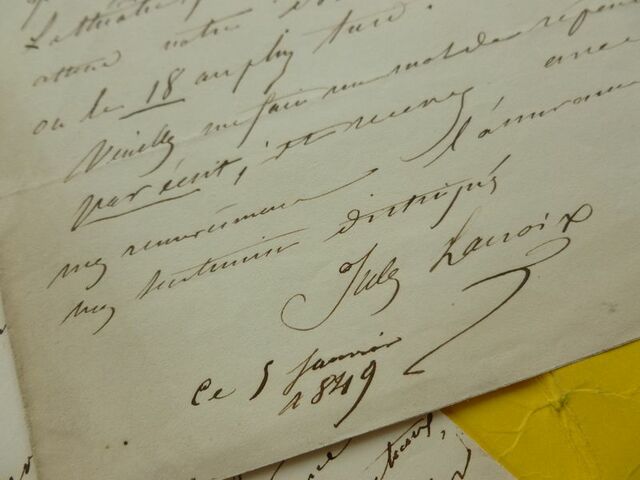 notre
ou le 18 au plus tard.
Veuillez me faire un mot de réponse
par écrit, et recevez avec
mes remerciemens l'assurance
mes sentimens distingués
Jules Lacroix
ce 5 Janvier
1849